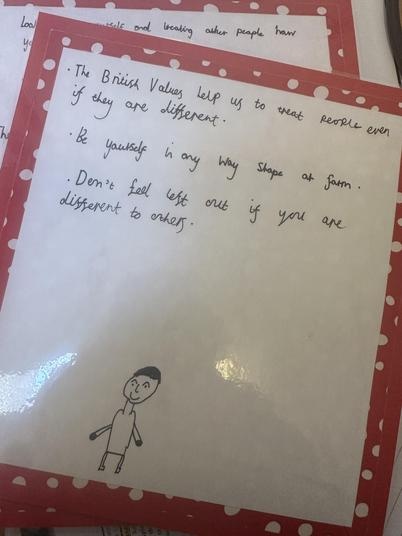 and treating other people how
yo
Th
· The British Values help us to treat people even
if they are different.
· Be yourself in any way shape or form.
· Don't feel left out if you are
different to others.